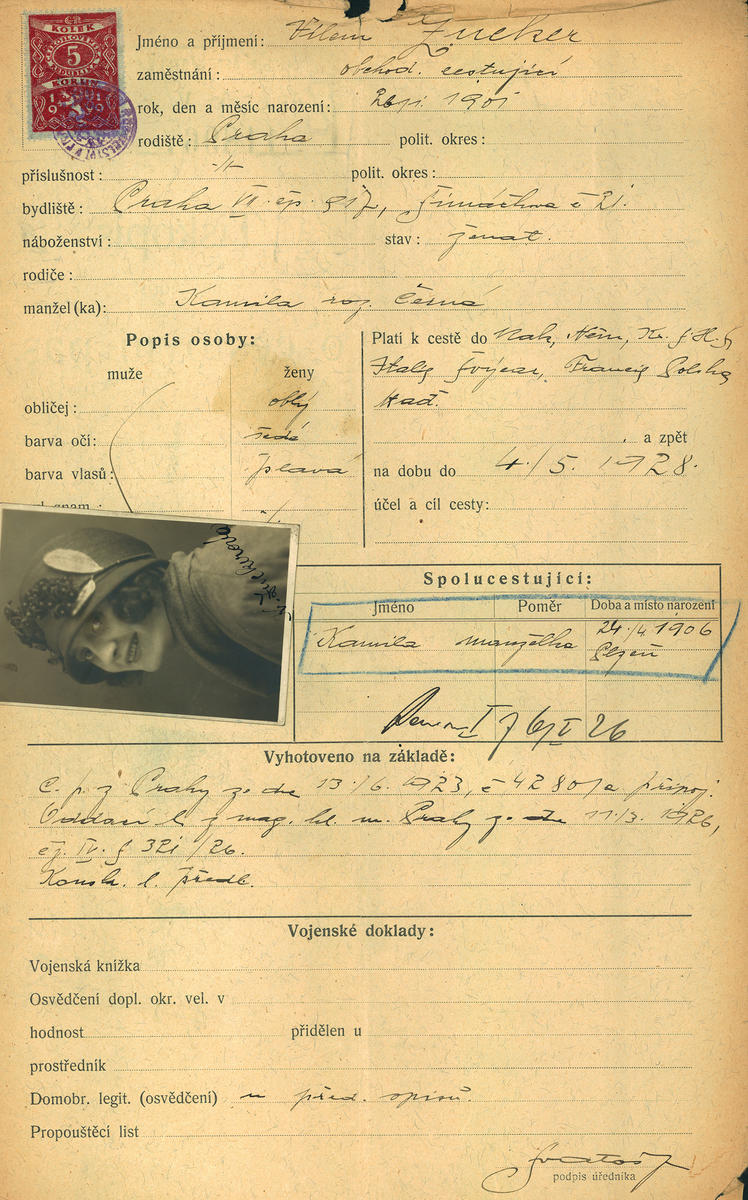 KOLEK
5
KORUN
Jméno a příjmení: Vilém Zucker
zaměstnání: obchod. cestující
rok, den a měsíc narození: 1901
rodiště: Praha polit. okres:
příslušnost: -"- polit. okres:
bydliště: Praha VII. čp. 917, Šimáčkova č 21.
náboženství: stav: ženat.
rodiče:
manžel (ka): Kamila roz. Černá
Popis osoby:
muže ženy
obličej: oblý
barva očí: šedé
barva vlasů: plavá
Platí k cestě do Rak, Něm,
Italy Švýcar, Francie Polska
Maď.
a zpět
na dobu do 4./5. 1928.
účel a cíl cesty:
Zuckerová
Spolucestující:
Jméno Poměr Doba a místo narození
Kamila manželka 24./4. 1906
Plzeň
26
Vyhotoveno na základě:
C. p. z Prahy ze dne 13./6. 1923, č 42801/a připoj.
Oddací l. z mag. hl. m. Prahy ze dne 11./3. 1926,
čj. IV. 321/26.
l. předl.
Vojenské doklady:
Vojenská knížka
Osvědčení dopl. okr. vel. v
hodnost přidělen u
prostředník
Domobr. legit. (osvědčení) u před. spisů.
Propouštěcí list
podpis úředníka